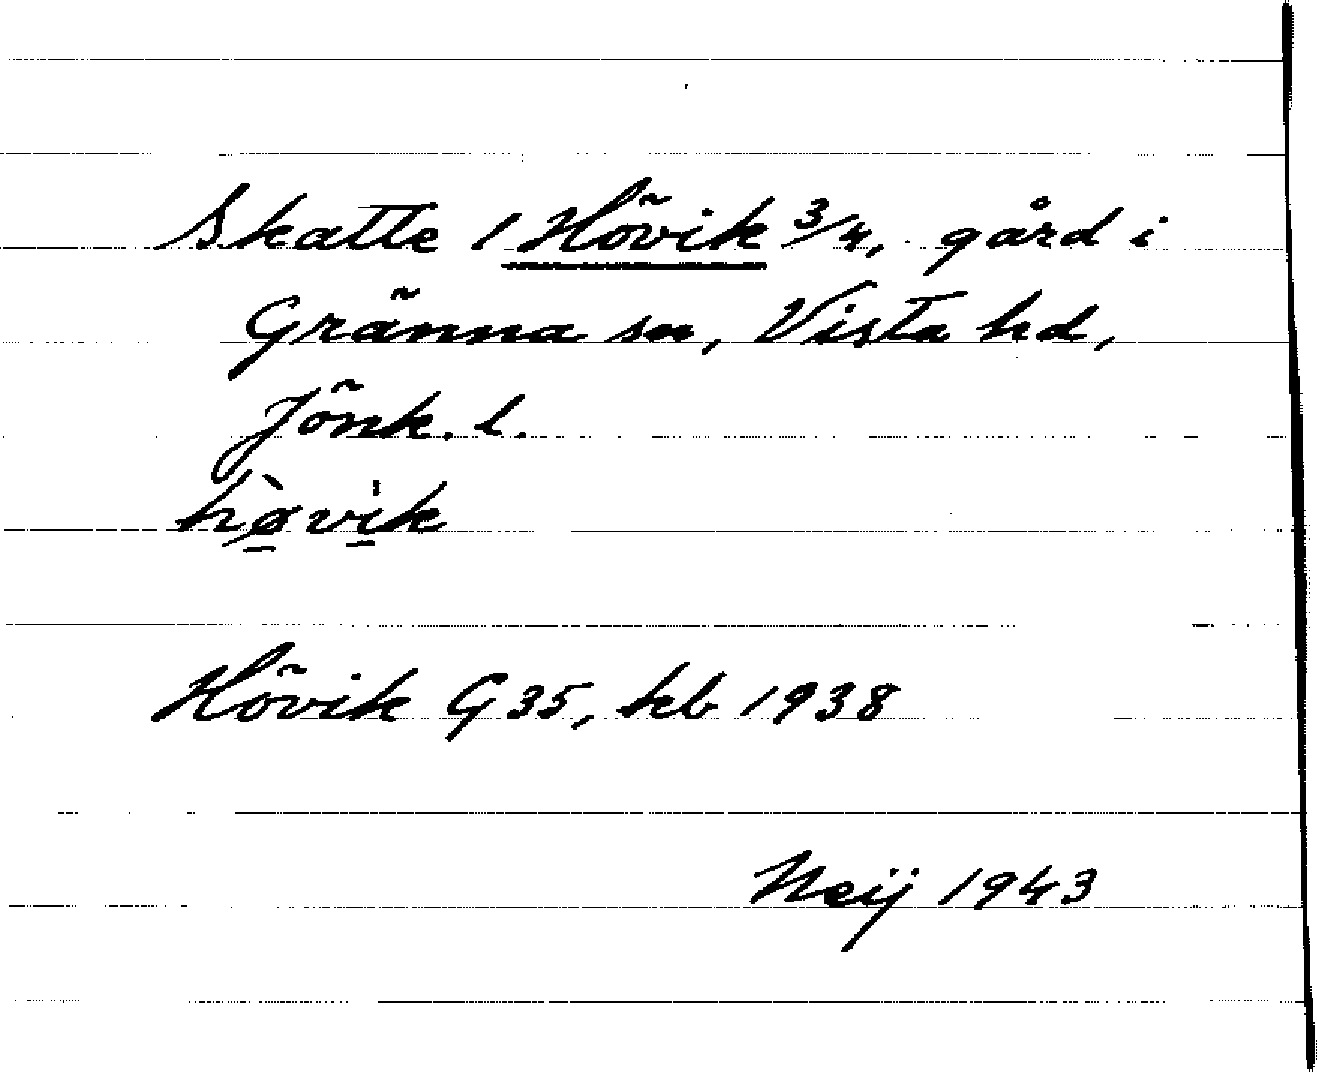 Skatte 1 Hövik 3/4, gård i
Gränna sn, Vista hd,
Jönk. l.
hø̠̀vi̠k
Hövik G 35, kb 1938
Neij 1943